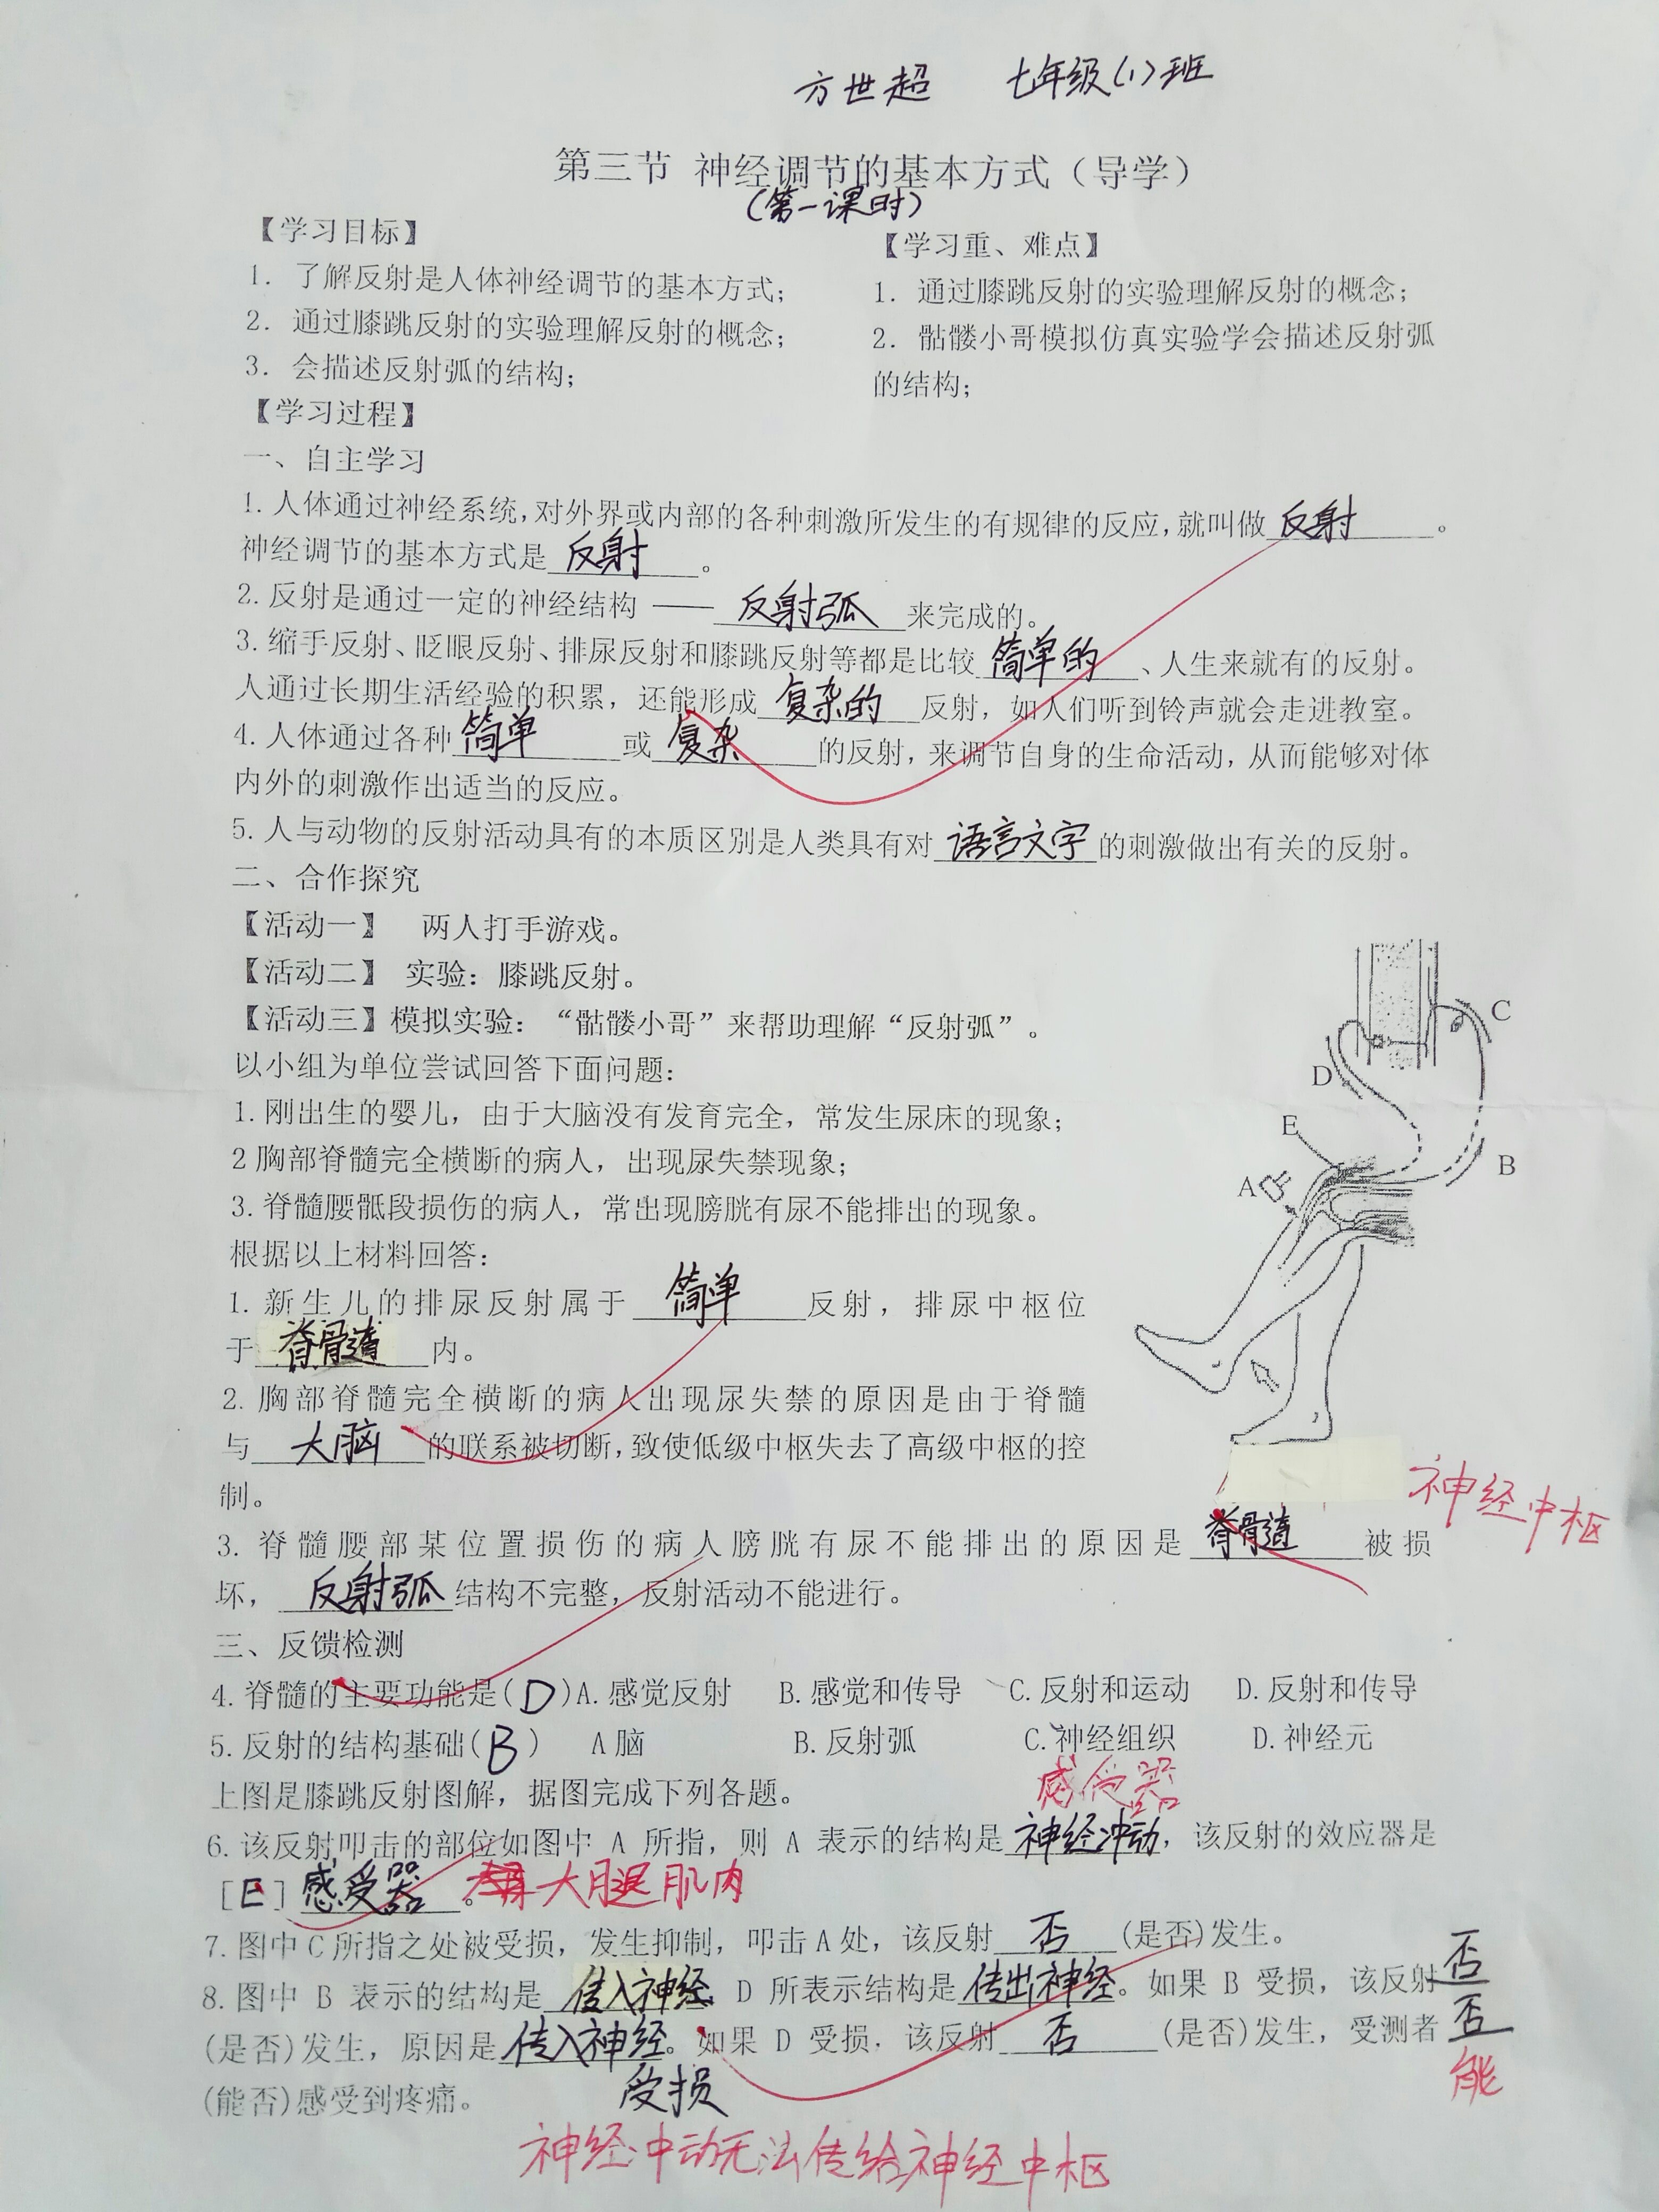 方世超 七年级(1)班
第三节 神经调节的基本方式（导学）
(第一课时)
【学习目标】
1. 了解反射是人体神经调节的基本方式；
2. 通过膝跳反射的实验理解反射的概念；
3. 会描述反射弧的结构；
【学习重、难点】
1. 通过膝跳反射的实验理解反射的概念；
2. 骷髅小哥模拟仿真实验学会描述反射弧
的结构；
【学习过程】
一、自主学习
1. 人体通过神经系统，对外界或内部的各种刺激所发生的有规律的反应，就叫做 反射 。
神经调节的基本方式是 反射 。
2. 反射是通过一定的神经结构 —— 反射弧 来完成的。
3. 缩手反射、眨眼反射、排尿反射和膝跳反射等都是比较 简单的 、人生来就有的反射。
人通过长期生活经验的积累，还能形成 复杂的 反射，如人们听到铃声就会走进教室。
4. 人体通过各种 简单 或 复杂 的反射，来调节自身的生命活动，从而能够对体
内外的刺激作出适当的反应。
5. 人与动物的反射活动具有的本质区别是人类具有对 语言文字 的刺激做出有关的反射。
二、合作探究
【活动一】 两人打手游戏。
【活动二】 实验：膝跳反射。
【活动三】模拟实验：“骷髅小哥”来帮助理解“反射弧”。
以小组为单位尝试回答下面问题：
1. 刚出生的婴儿，由于大脑没有发育完全，常发生尿床的现象；
2 胸部脊髓完全横断的病人，出现尿失禁现象；
3. 脊髓腰骶段损伤的病人，常出现膀胱有尿不能排出的现象。
根据以上材料回答：
C
D
E
B
A
1. 新生儿的排尿反射属于 简单 反射，排尿中枢位
于 脊髓 内。
2. 胸部脊髓完全横断的病人出现尿失禁的原因是由于脊髓
与 大脑 的联系被切断，致使低级中枢失去了高级中枢的控
制。
神经中枢
3. 脊髓腰部某位置损伤的病人膀胱有尿不能排出的原因是 脊髓 被损
坏， 反射弧 结构不完整，反射活动不能进行。
三、反馈检测
4. 脊髓的主要功能是(D)A. 感觉反射 B. 感觉和传导 C. 反射和运动 D. 反射和传导
5. 反射的结构基础(B) A 脑 B. 反射弧 C. 神经组织 D. 神经元
上图是膝跳反射图解，据图完成下列各题。
感受器
6. 该反射叩击的部位如图中 A 所指，则 A 表示的结构是 神经冲动，该反射的效应器是
[E] 感受器 。 大腿肌肉
7. 图中C所指之处被受损，发生抑制，叩击A处，该反射 否 (是否)发生。
8. 图中 B 表示的结构是 传入神经，D 所表示结构是 传出神经。如果 B 受损，该反射 否
(是否)发生，原因是 传入神经。如果 D 受损，该反射 否 (是否)发生，受测者 否
受损
能
(能否)感受到疼痛。
神经冲动无法传给神经中枢